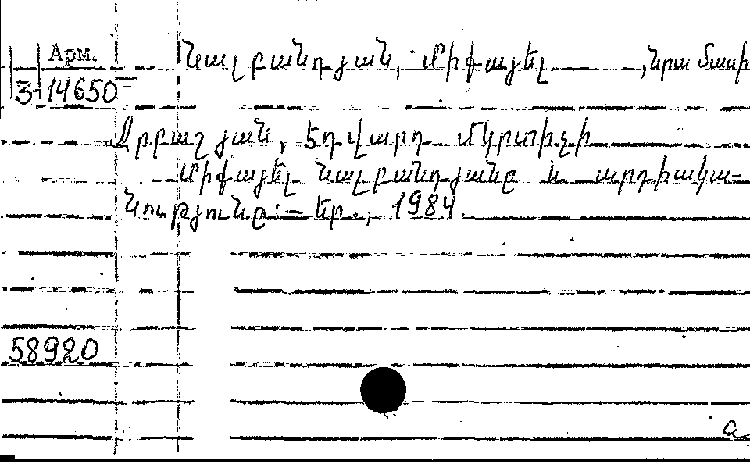 Арм.
3-14650
Նալբանդյան, Միքայել ,նրա մասի
Ջրբաշյան, Էդվարդ Մկրտիչի
Միքայել Նալբանդյանը և արդիակա-
նությունը։— Եր., 1984.
58920
а